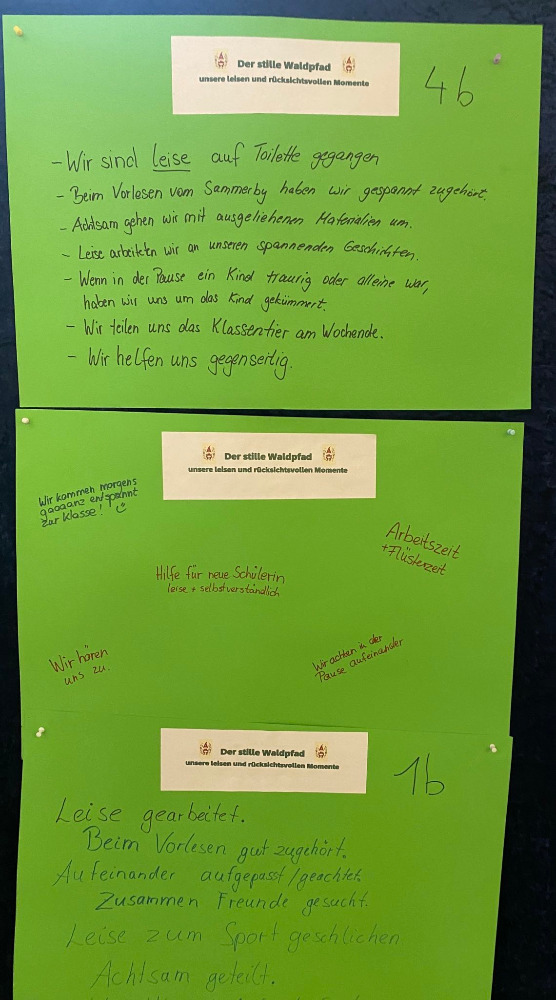 Der stille Waldpfad
unsere leisen und rücksichtsvollen Momente
4b
- Wir sind leise auf Toilette gegangen
- Beim Vorlesen vom Sammerby haben wir gespannt zugehört.
- Achtsam gehen wir mit ausgeliehenen Materialien um.
- Leise arbeiteten wir an unseren spannenden Geschichten.
- Wenn in der Pause ein Kind traurig oder alleine war,
haben wir uns um das Kind gekümmert.
- Wir teilen uns das Klassentier am Wochende.
- Wir helfen uns gegenseitig.
Der stille Waldpfad
unsere leisen und rücksichtsvollen Momente
Wir kommen morgens
gaaaanz entspannt
zur Klasse!
Arbeitszeit
+ Flüsterzeit
Hilfe für neue Schülerin
leise + selbstverständlich
Wir hören
uns zu.
Wir achten in der
Pause aufeinander
Der stille Waldpfad
unsere leisen und rücksichtsvollen Momente
1b
Leise gearbeitet.
Beim Vorlesen gut zugehört.
Aufeinander aufgepasst/geachtet.
Zusammen Freunde gesucht.
Leise zum Sport geschlichen
Achtsam geteilt.